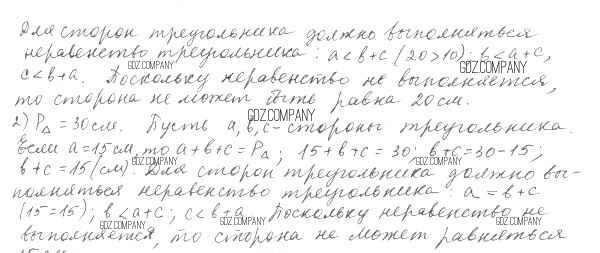 Для сторон треугольника должно выполняться
неравенство треугольника: a < b + c (20 > 10); b < a + c,
GDZ.COMPANY
GDZ.COMPANY
c < b + a. Поскольку неравенство не выполняется,
то сторона не может быть равна 20 см.
GDZ.COMPANY
2) P△ = 30 см. Пусть a, b, c - стороны треугольника.
Если a = 15 см, то a + b + c = P△; 15 + b + c = 30; b + c = 30 - 15;
GDZ.COMPANY
GDZ.COMPANY
b + c = 15 (см). Для сторон треугольника должно вы-
полняться неравенство треугольника: a = b + c
(15 = 15); b < a + c; c < b + a. Поскольку неравенство не
GDZ.COMPANY
GDZ.COMPANY
GDZ.COMPANY
выполняется, то сторона не может равняться